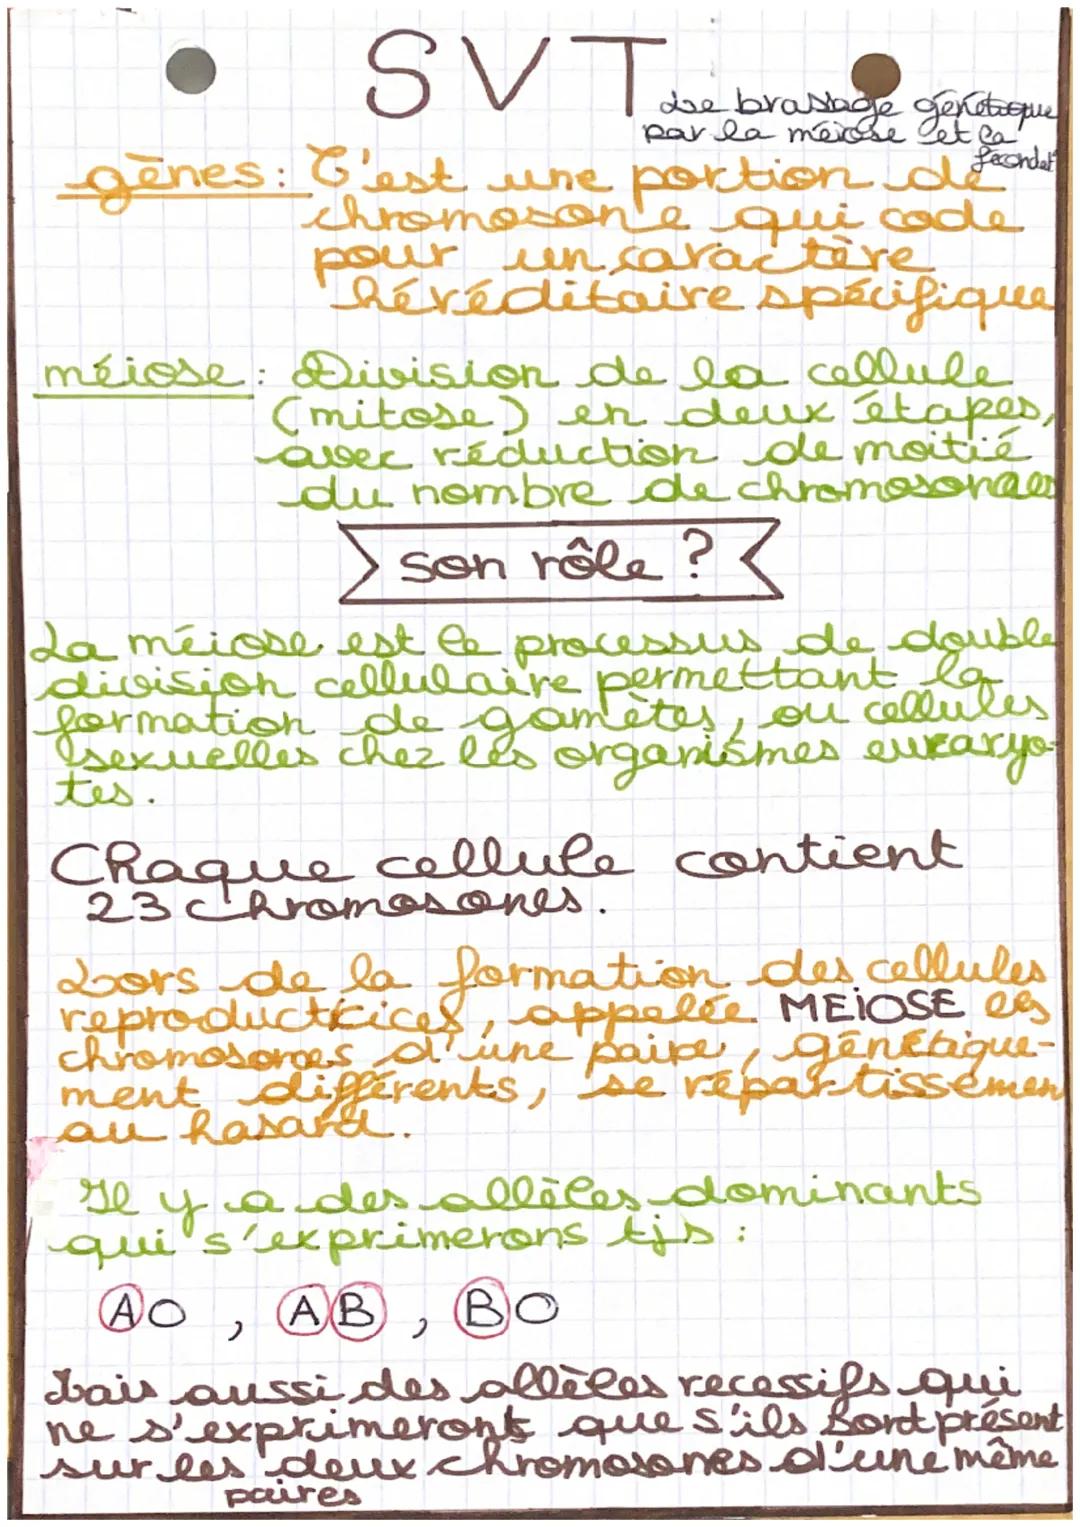 SVT
Le brassage génétique
par la méiose et la
fecondat°
gènes : C'est une portion de
chromosone qui code
pour un caractère
héréditaire spécifique
méiose : Division de la cellule
(mitose) en deux étapes,
avec réduction de moitié
du nombre de chromosones
son rôle ?
La méiose est le processus de double
division cellulaire permettant la
formation de gamètes, ou cellules
sexuelles chez les organismes eukaryo-
tes.
Chaque cellule contient
23 chromosones.
Lors de la formation des cellules
reproductrices, appelée MEIOSE les
chromosones d'une paire, génétique-
ment différents, se répartissemen
au hasard.
Il y a des allèles dominants
qui s'exprimerons tjs :
AO, AB, BO
Mais aussi des allèles recessifs qui
ne s'exprimeront que s'ils sont présent
sur les deux chromosones d'une même
paires